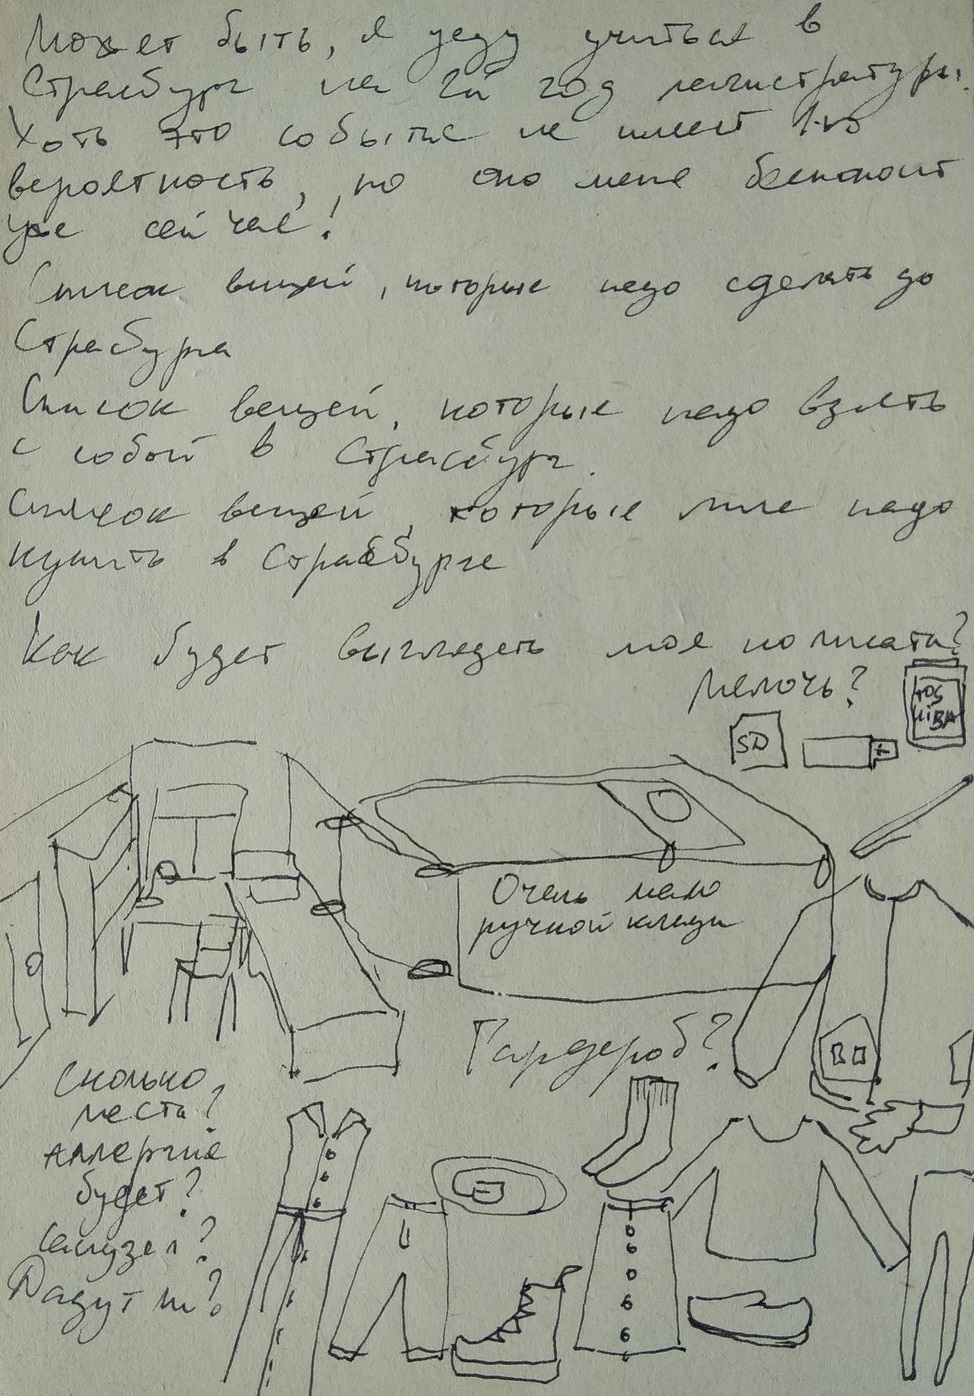 Может быть, я уеду учиться в
Страсбург на 2й год магистратуры.
Хоть это событие не имеет 1-ю
вероятность, но оно меня беспокоит
уже сейчас!
Список вещей, которые надо сделать до
Страсбурга
Список вещей, которые надо взять
с собой в Страсбург.
Список вещей, которые мне надо
купить в Страсбурге
Как будет выглядеть моя комната?
Мелочь?
SD
TOS
HIBA
Очень мало
ручной клади
Гардероб?
Сколько
места?
Аллергия
будет?
Санузел?
Дадут ли?